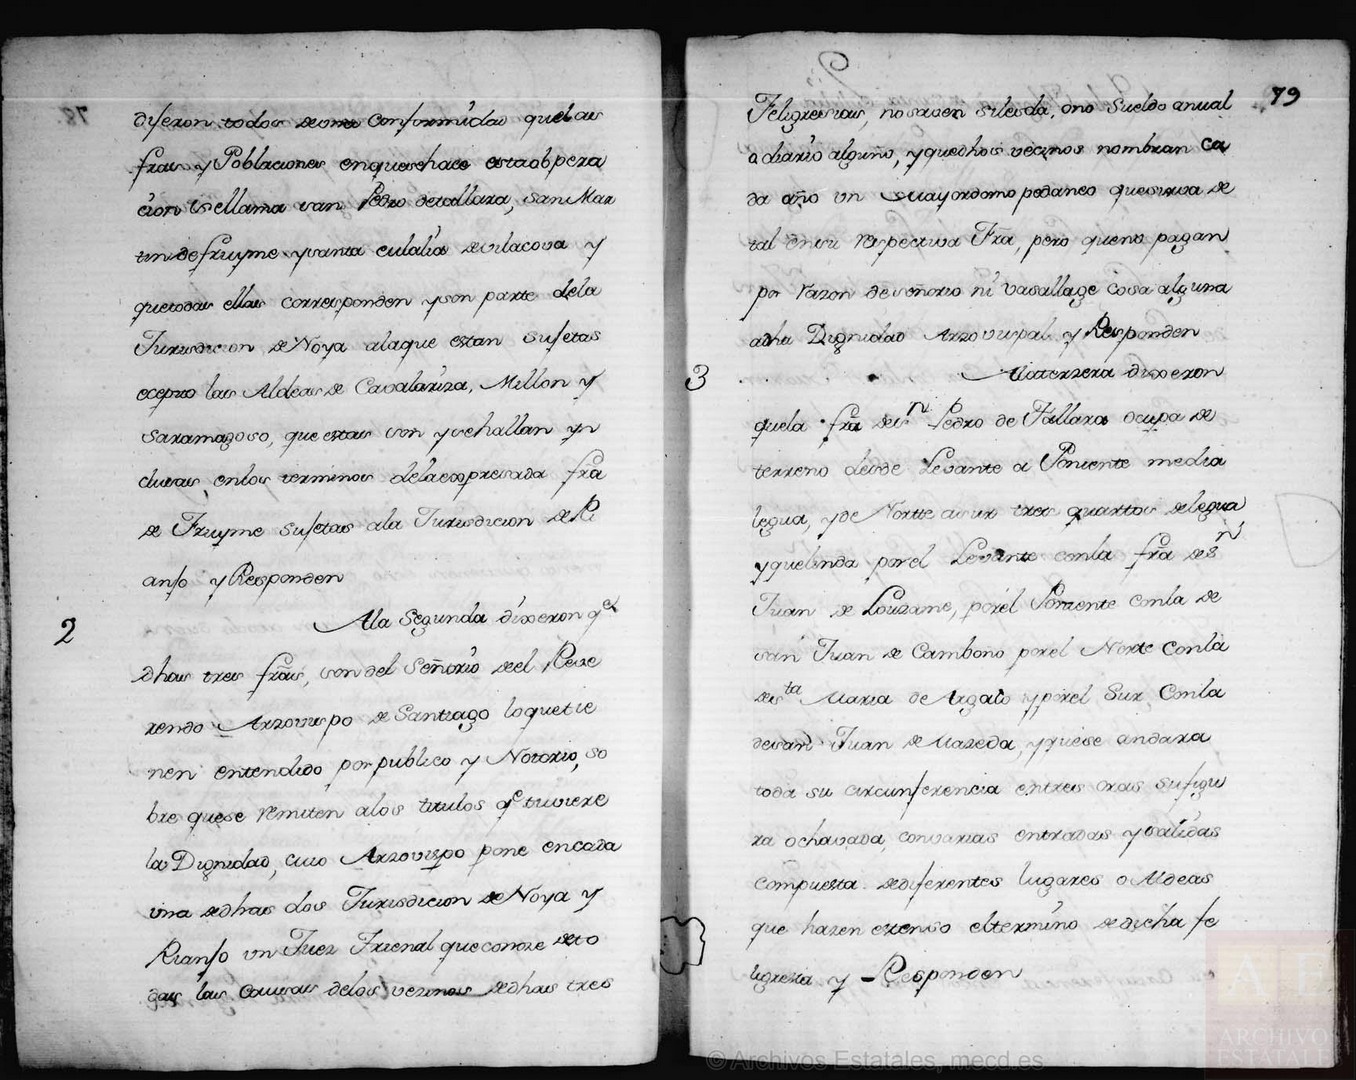 dijeron todos de una conformidad quelas
fras y Poblaciones enquesehace estaobpera
cion sellama san Pedro detallara, San Mar
tin de fruyme ysanta eulalia devilacova y
quetodas ellas corresponden yson parte dela
Jurisdicion de Noya alaque estan sujetas
excepto las Aldeas de Cavalariza, Millon y
Saramagoso, que estas son ysehallan yn
clusas enlos terminos delaexpresada fra
de Fruyme sujetas ala Jurisdicion de Ri
anjo y Responden
2
Ala Segunda dixeron qe
dhas tres fras, son del Señorio del Reve
rendo Arzovispo de Santiago loquetie
nen entendido por publico y Notorio, so
bre quese remiten alos titulos qe tuviere
la Dignidad, cuio Arzovispo pone encada
una dedhas dos Jurisdicion de Noya y
Rianjo un Juez Trienal queconoze deto
das las causas delos vezinos dedhas tres
79
Feligresias, nosaven sileida, ono Sueldo anual
o diario alguno, yquedhos vecinos nombran ca
da año un Mayordomo pedaneo quesirva de
tal ensu respectiva Fra, pero queno pagan
por razon deseñorio ni vasallage cosa alguna
adha Dignidad Arzovispal y Responden
3
Alaterzera dixeron
quela fra den Pedro de Tallara ocupa de
terreno desde Levante a Poniente media
legua, yde Nortte asur tres quarttos delegua
yquelinda porel Levante conla fra de Sn
Juan de Louzame, porel Poniente conla de
san Juan de Camboño porel Norte Conla
desta Maria de Argalo yporel Sur Conla
desan Juan de Mazeda, yquese andara
toda su circunferencia entres oras sufigu
ra ochavada, convarias entradas ysalidas
compuesta dediferentes lugares o Aldeas
que hazen extenso eltermino dedicha fe
ligresia y Responden
© Archivos Estatales, mecd.es
ARCHIVOS
ESTATALES